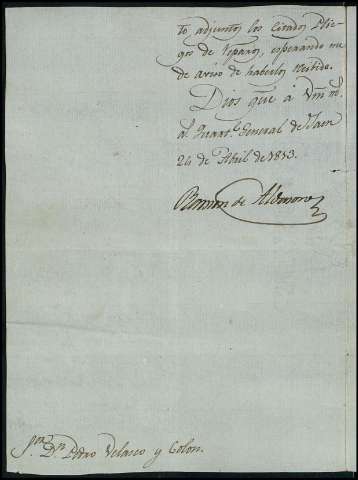 to adjuntos los citados Plie-
gos de reparos, esperando me
de aviso de haberlos recibido.
Dios gue. á Vm m.s
a.s General de
24 de Abril de 1813.
Ramon de
Sr. Dn. Pedro Velasco y Colon.